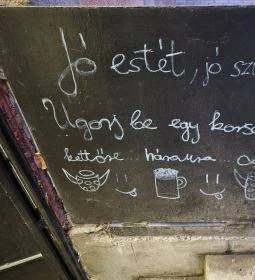 Jó estét, jó sz
Ugorj be egy kors
kettőre... háromra...